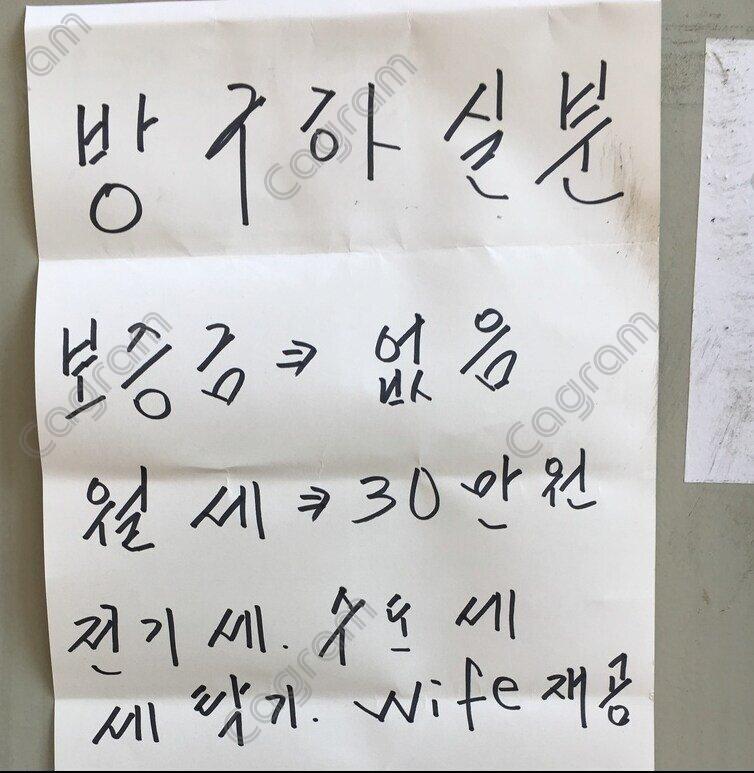 방 구하실분
보증금 ⇒ 없음
월세 ⇒ 30만원
전기세. 수도세
세탁기. Wife 재공